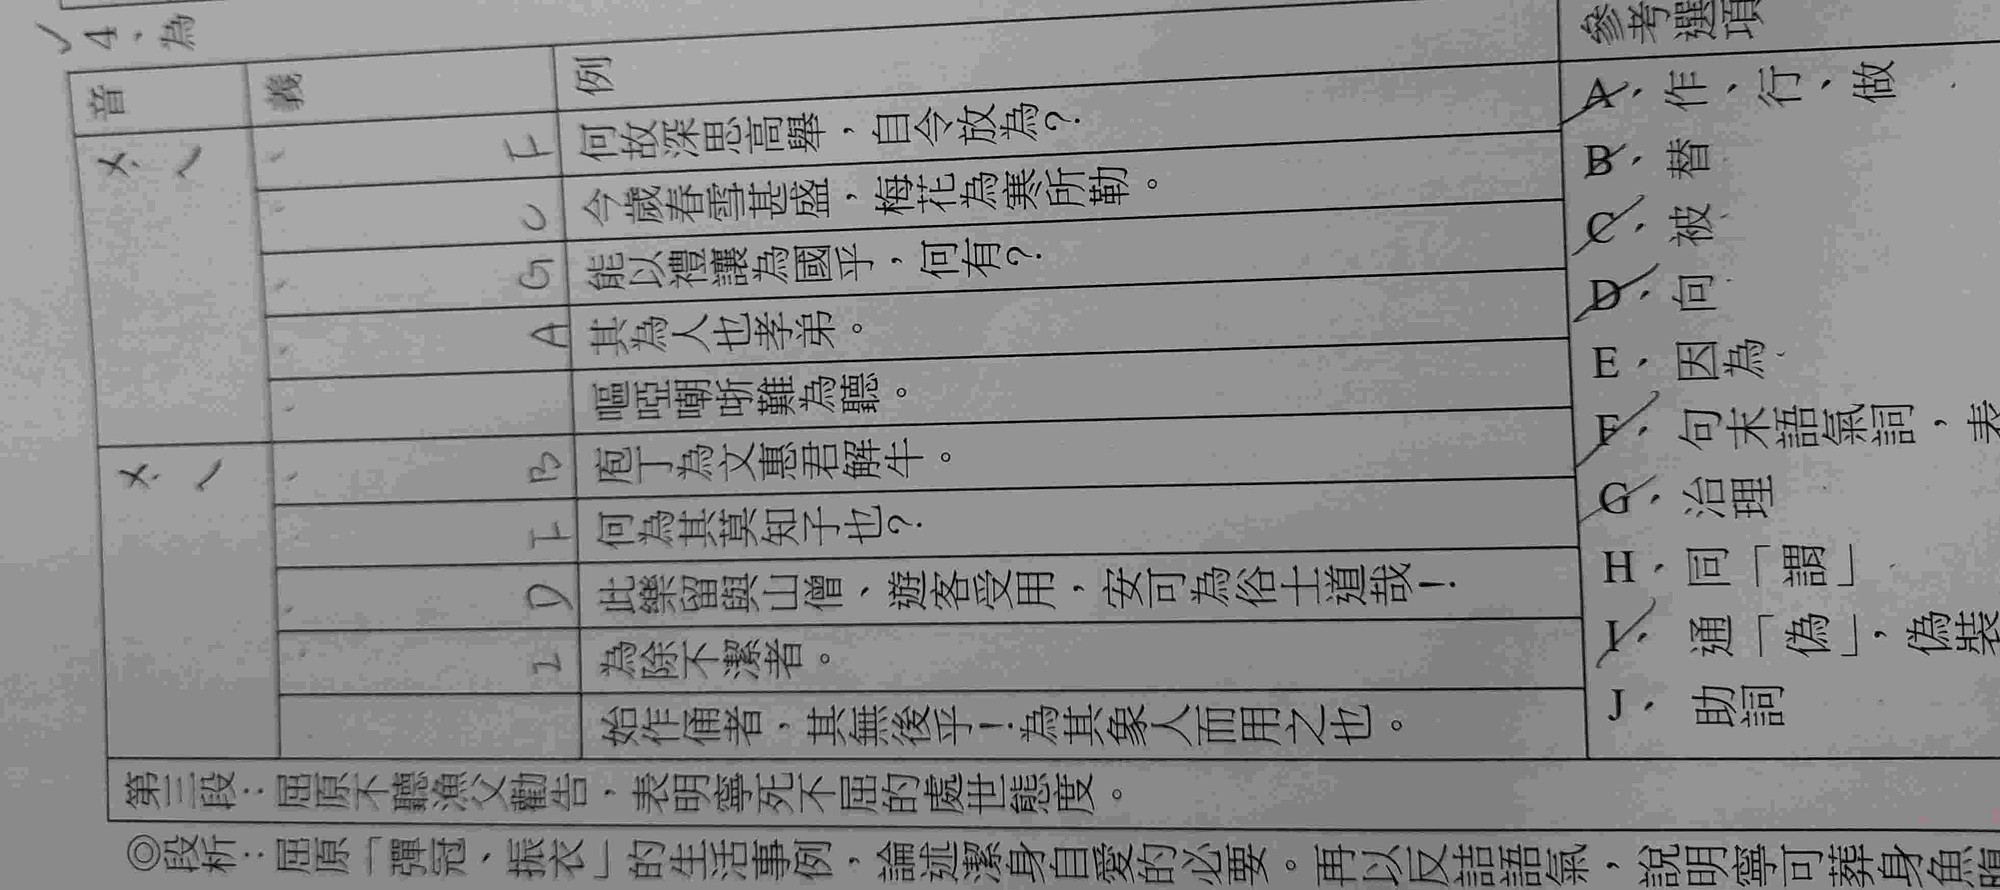 ✓4、為
音 義 例 參考選項
ㄨˊ ㄟ
F 何故深思高舉，自令放為？
C 今歲春雪甚盛，梅花為寒所勒。
G 能以禮讓為國乎，何有？
A 其為人也孝弟。
嘔啞嘲哳難為聽。
ㄨˋ ㄟ
B 庖丁為文惠君解牛。
I 何為其莫知子也？
D 此樂留與山僧、遊客受用，安可為俗士道哉！
I 為除不潔者。
始作俑者，其無後乎！為其象人而用之也。
A、作、行、做
B、替
C、被
D、向
E、因為
F、句末語氣詞，表
G、治理
H、同「謂」
I、通「偽」，偽裝
J、助詞
第三段：屈原不聽漁父勸告，表明寧死不屈的處世態度。
◎段析：屈原「彈冠、振衣」的生活事例，論述潔身自愛的必要。再以反詰語氣，說明寧可葬身魚腹